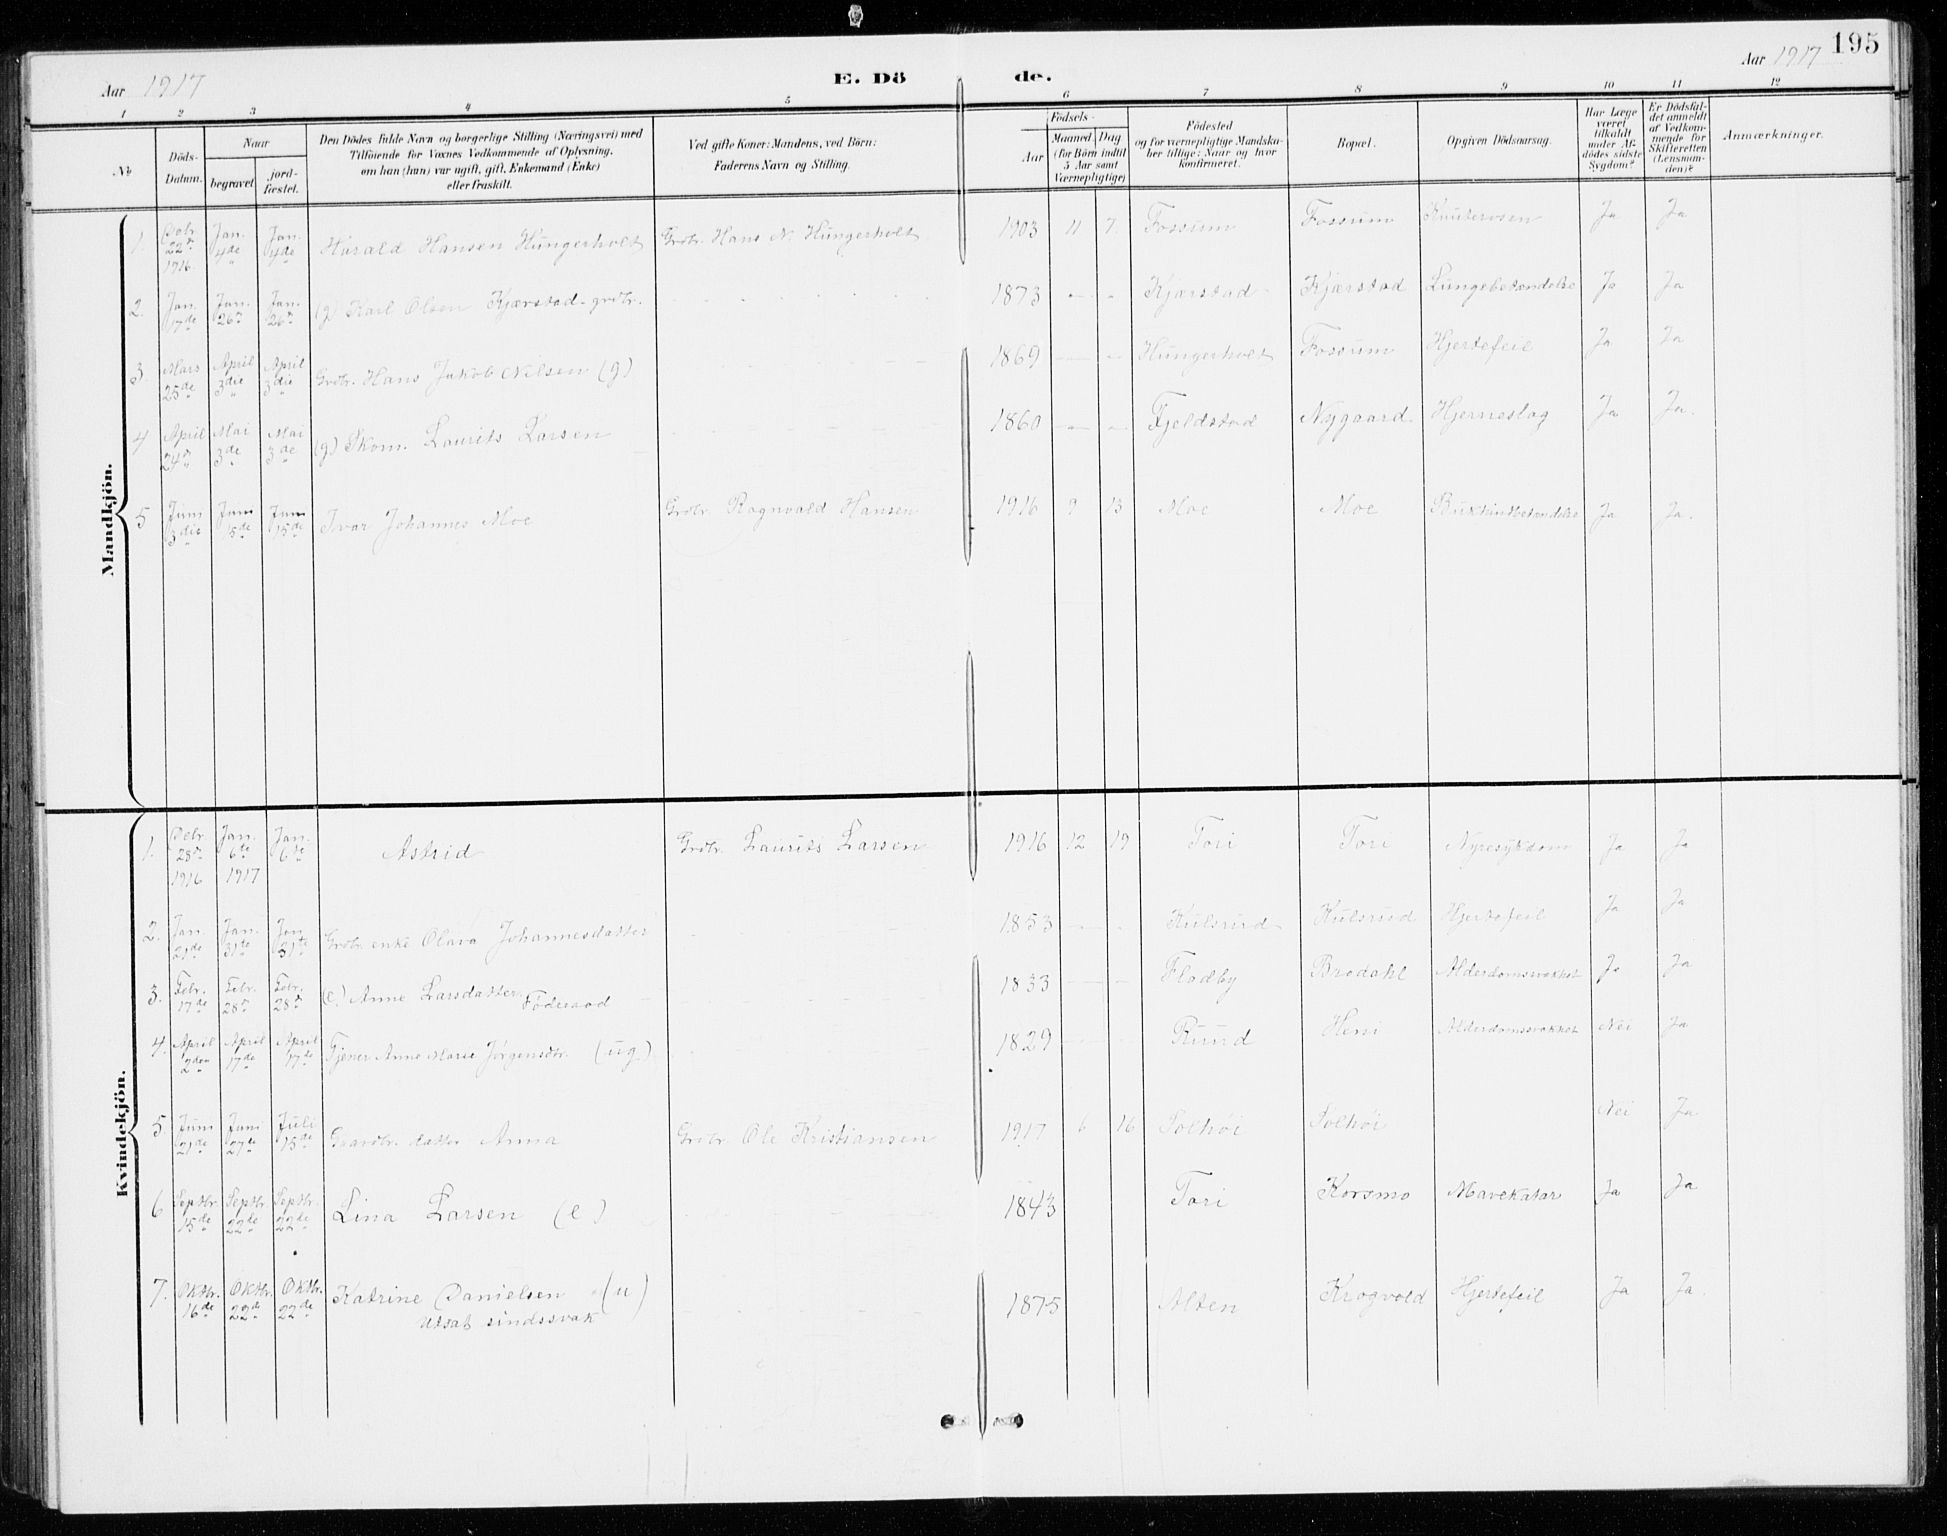 195
Aar 1917
E. Dö de.
Aar 1917
1 2 3 4 5 6 7 8 9 10 11 12
No
Döds-Datum.
Naar
begravet.
jord-fæstet.
Den Dödes fulde Navn og borgerlige Stilling (Næringsvei) med
Tilföiende for Voxnes Vedkommende af Oplysning,
om han (hun) var ugift, gift, Enkemand (Enke)
eller fraskilt.
Ved gifte Koner: Mandens, ved Börn:
Faderens Navn og Stilling.
Födsels-
Aar
Maaned. Dag
(for Börn indtil
5 Aar samt
Værnepligtige)
Födested
og for værnepligtige Mandska-
ber tillige: Naar og hvor
konfirmeret.
Bopæl.
Opgiven Dödsaarsag.
Har Læge
været
tilkaldt
under Af-
dödes sidste
Sygdom?
Er Dödsfal-
det anmeldt
af Vedkom-
mende for
Skifteretten
(Lensman-
den)?
Anmærkninger.
Mandkjön.
1. Debr. 22de 1916 Jan. 4de Jan. 4de Harald Hansen Hungerholt Grdbr. Hans N. Hungerholt 1903 11 7. Fossum Fossum Knuterosen Ja Ja
2. Jan. 17de Jan. 26de Jan. 26de (g) Karl Olsen Kjærstad - grdbr. 1873 Kjærstad Kjærstad Lungebetændelse Ja Ja
3. Mars 25de April 3die April 3die Grdbr. Hans Jakob Nilsen (g) 1869 Hungerholt Fossum Hjertefeil Ja Ja
4 April 24de Mai 3de Mai 3de (g) Skom. Laurits Larsen 1860 Fjeldstad Nygaard Hjerneslag Ja Ja.
5 Juni 3die Juni 15de Juni 15de Ivar Johannes Moe Grdbr. Ragnvald Hansen 1916 9 13 Moe Moe Bukhindbetændelse Ja Ja.
Kvindekjön.
1. Debr. 28de 1916 Jan. 6te 1917 Jan. 6te Astrid Grdbr. Laurits Larsen 1916 12 19 Tori Tori Nyresykdom Ja Ja
2. Jan. 21de Jan. 31te Jan. 31te Grdbr. enke Olava Johannesdatter 1853 Kulsrud Kulsrud Hjertefeil Ja Ja
3. Febr. 17de Febr. 28de Febr. 28de (e.) Anne Larsdatter Føderaad 1833 Fladby Brodahl Alderdomssvakhet Ja Ja
4. April 2den April 17de April 17de Tjener Anne Marie Jörgensdtr. (ug) 1829 Ruud Hem Alderdomssvakhet Nei Ja
5. Juni 21de Juni 27de Juli 15de Gaardbr. datter Anna Grdbr. Ole Kristiansen 1917 6 16 Solhöi Solhöi Nei Ja
6 Septbr. 15de Septbr. 22de Septbr. 22de Lina Larsen (e) 1843 Tori Korsmo Mavekatar Ja Ja
7. Oktbr. 16de Oktbr. 22de Oktbr. 22de Katrine Danielsen (u) 1875 Alten Krogvold Hjertefeil Ja Ja.
Utsat sindssvak